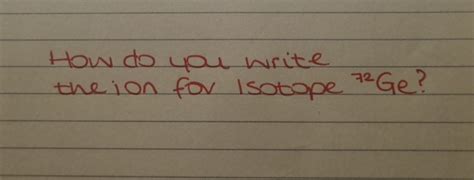 How do you write
the ion for Isotope ⁷²Ge?